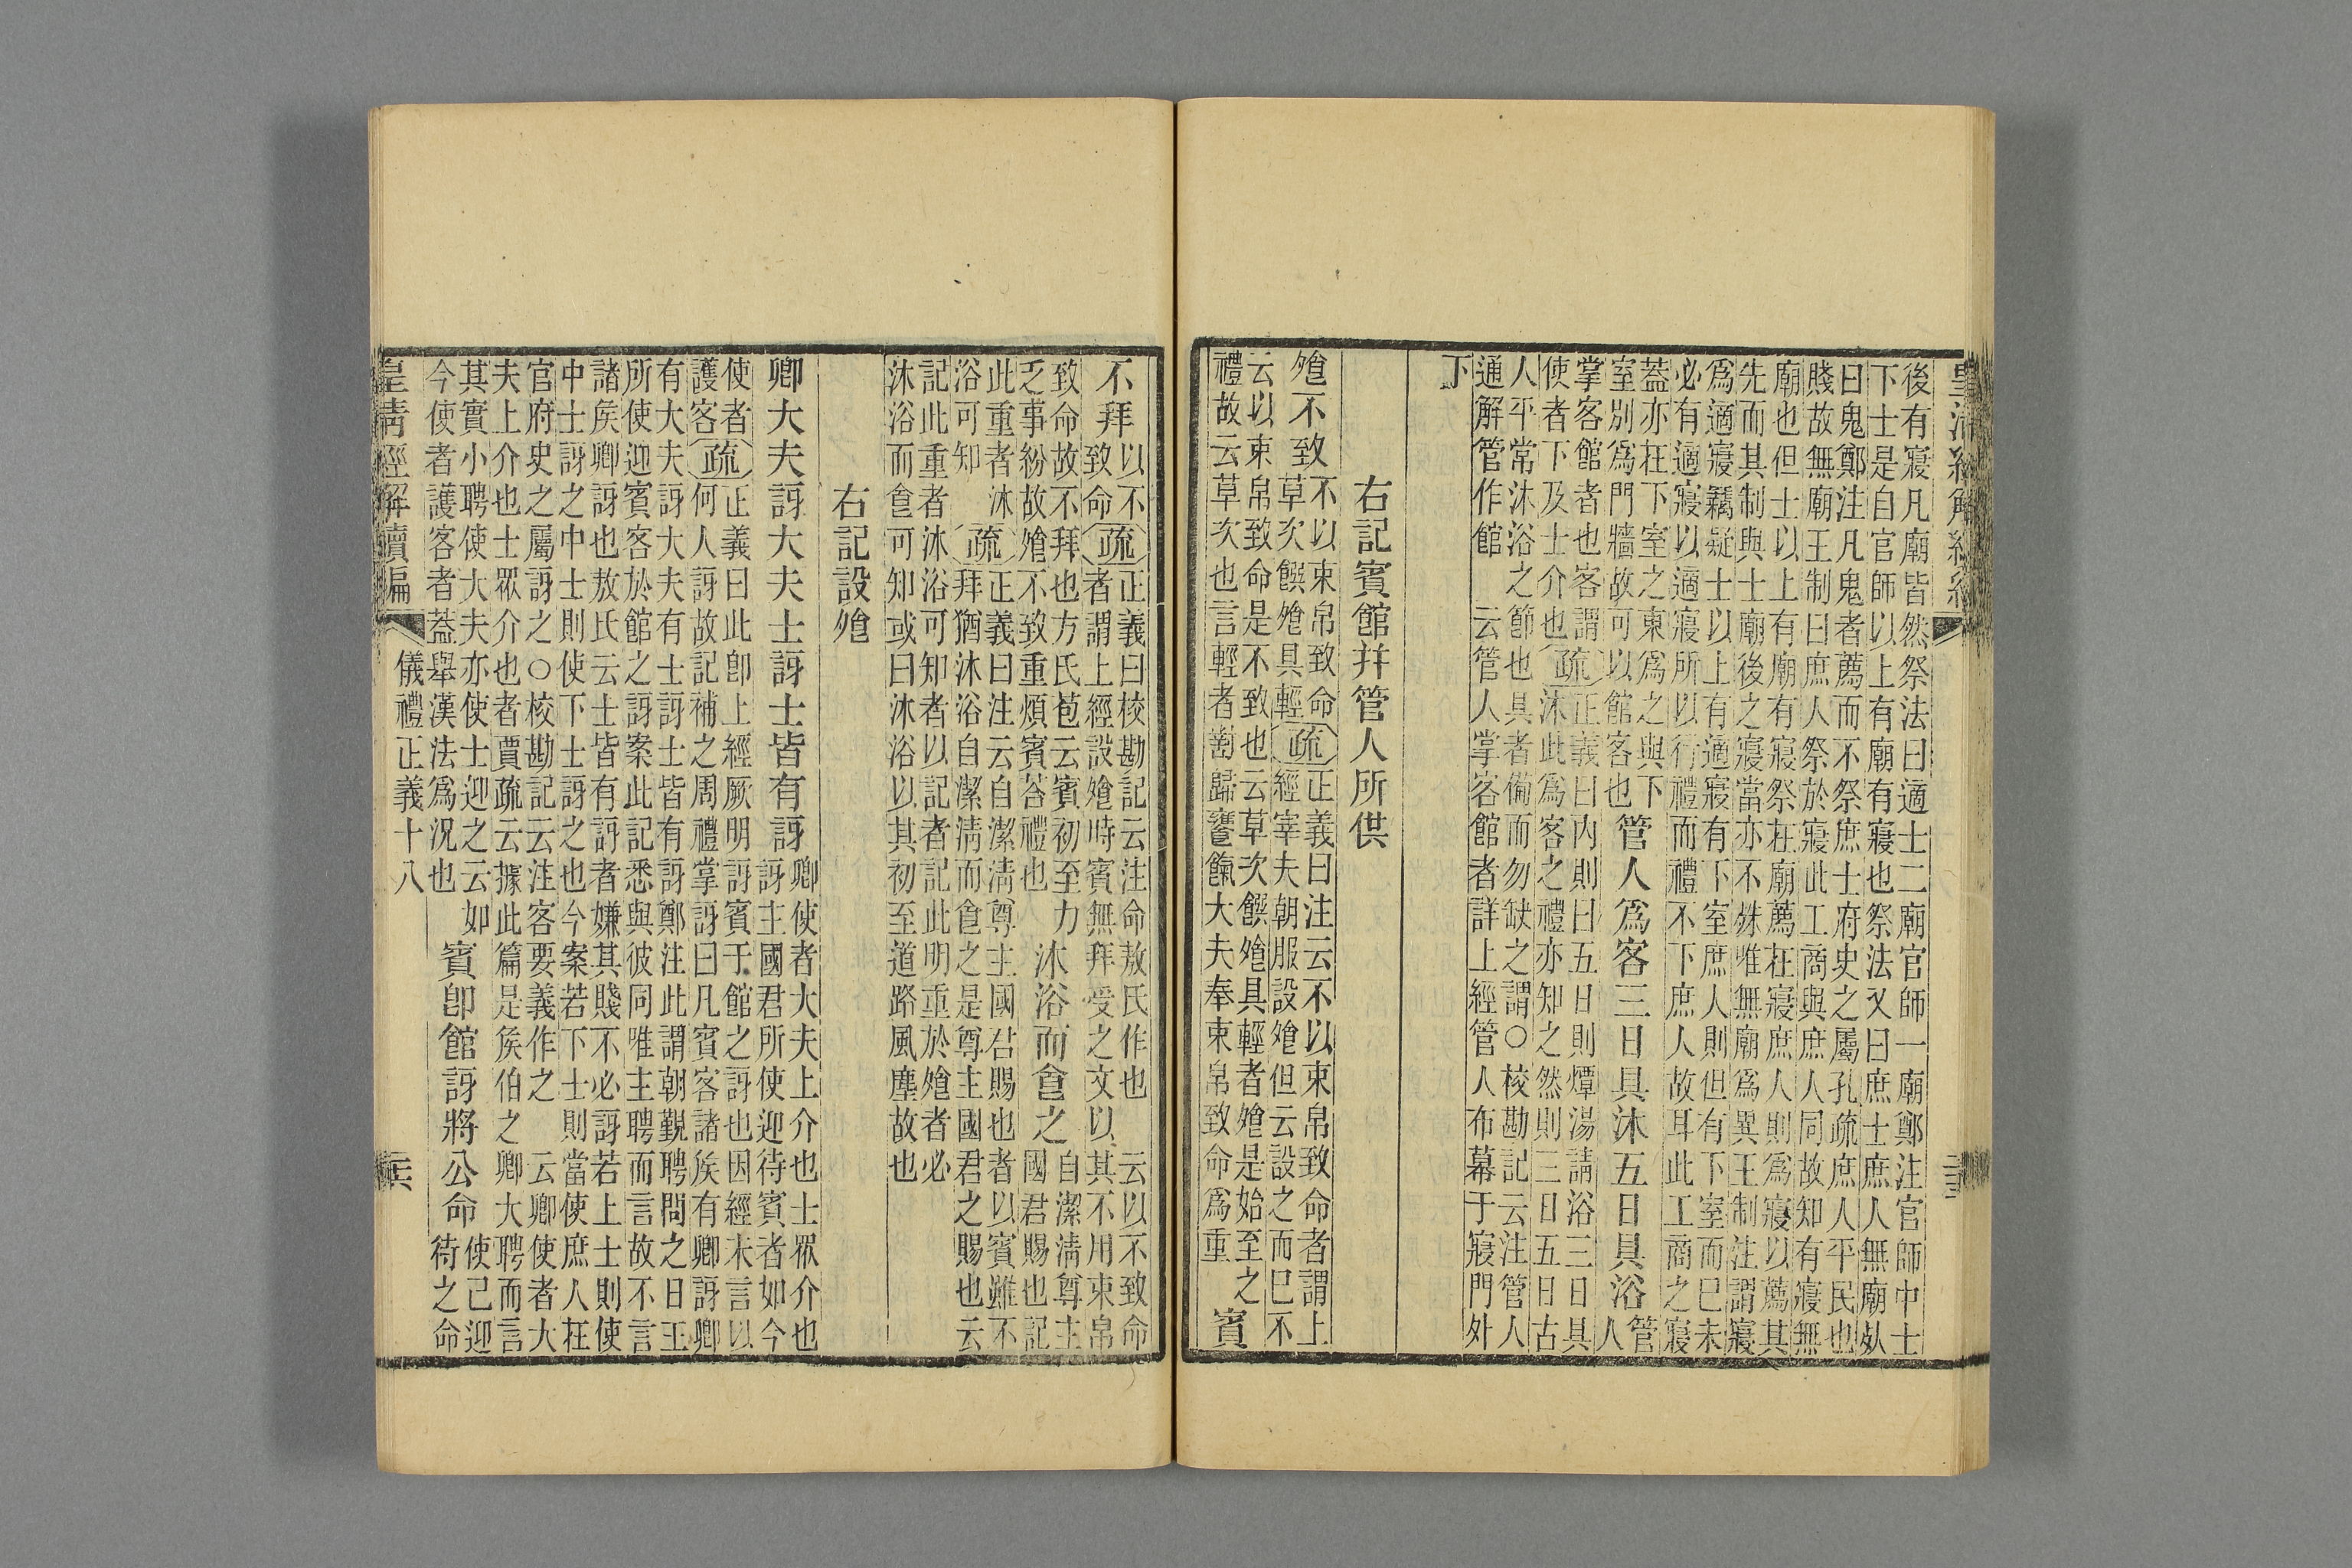 皇清經解續編
後有寢凡廟皆然祭法曰適士二廟官師一廟鄭注官師中士
下士是自官師以上有廟有寢也祭法又曰庶士庶人無廟死
曰鬼鄭注凡鬼者薦而不祭庶士府史之屬孔疏庶人平民也
賤故無廟王制曰庶人祭於寢此工商與庶人同故知有寢無
廟也但士以上有廟有寢祭在廟薦在寢庶人則爲寢以薦其
先而其制與士廟後之寢當亦不殊唯無廟爲異王制注謂寢
爲適寢竊疑士以上有適寢有下室庶人則但有下室而已未
必有適寢以適寢所以行禮而禮不下庶人故耳此工商之寢
蓋亦在下室之東爲之與下
室别爲門牆故可以館客也
管人爲客三日具沐五日具浴
管
人
掌客館者也客謂
使者下及士介也
疏
正義曰内則曰五日則燂湯請浴三日具
沐此爲客之禮亦知之然則三日五日古
人平常沐浴之節也具者備而勿缺之謂○校勘記云注管人
通解管作館
云管人掌客館者詳上經管人布幕于寢門外
下
右記賓館幷管人所供
飧不致
不以束帛致命
草次饌飧具輕
疏
正義曰注云不以束帛致命者謂上
經宰夫朝服設飧但云設之而已不
云以束帛致命是不致也云草次饌飧具輕者飧是始至之
禮故云草次也言輕者對歸饔餼大夫奉束帛致命爲重
賓
不拜
以不
致命
疏
正義曰校勘記云注命敖氏作也
云以不致命
者謂上經設飧時賓無拜受之文以其不用束帛
致命故不拜也方氏苞云賓初至力
乏事紛故飧不致重煩賓荅禮也
沐浴而食之
自潔清尊主
國君賜也記
此重者沐
浴可知
疏
正義曰注云自潔清尊主國君賜也者以賓雖不
拜猶沐浴自潔清而食之是尊主國君之賜也云
記此重者沐浴可知者以記者記此明重於飧者必
沐浴而食可知或曰沐浴以其初至道路風塵故也
右記設飧
卿大夫訝大夫士訝士皆有訝
卿使者大夫上介也士眾介也
訝主國君所使迎待賓者如今
使者
護客
疏
正義曰此卽上經厥明訝賓于館之訝也因經未言以
何人訝故記補之周禮掌訝曰凡賓客諸矦有卿訝卿
有大夫訝大夫有士訝士皆有訝鄭注此謂朝覲聘問之日王
所使迎賓客於館之訝案此記悉與彼同唯主聘而言故不言
諸矦卿訝也敖氏云士皆有訝者嫌其賤不必訝若上士則使
中士訝之中士則使下士訝之也今案若下士則當使庶人在
官府史之屬訝之○校勘記云注客要義作之
云卿使者大
夫上介也士眾介也者賈疏云據此篇是矦伯之卿大聘而言
其實小聘使大夫亦使士迎之云如
今使者護客者蓋舉漢法爲況也
賓卽館訝將公命
使己迎
待之命
皇清經解續編
儀禮正義十八